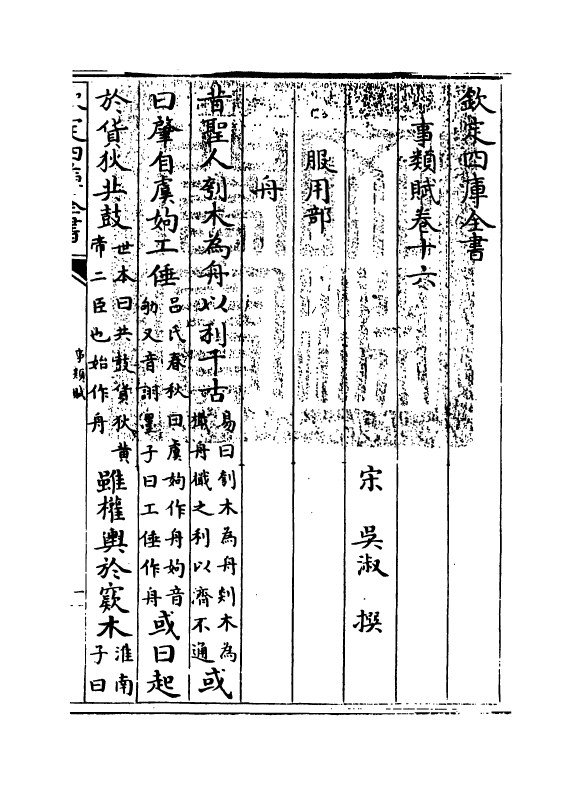 欽定四庫全書
事類賦卷十六
宋 吳淑 撰
服用部
舟
昔聖人刳木為舟以利千古易曰刳木為舟剡木為檝舟檝之利以濟不通或
曰肇自虞姁工倕呂氏春秋曰虞姁作舟姁音劬又音詡墨子曰工倕作舟或曰起
於貨狄共鼓世本曰共鼓貨狄黃帝二臣也始作舟雖權輿於窾木淮南子曰
欽定四庫全書
事類賦